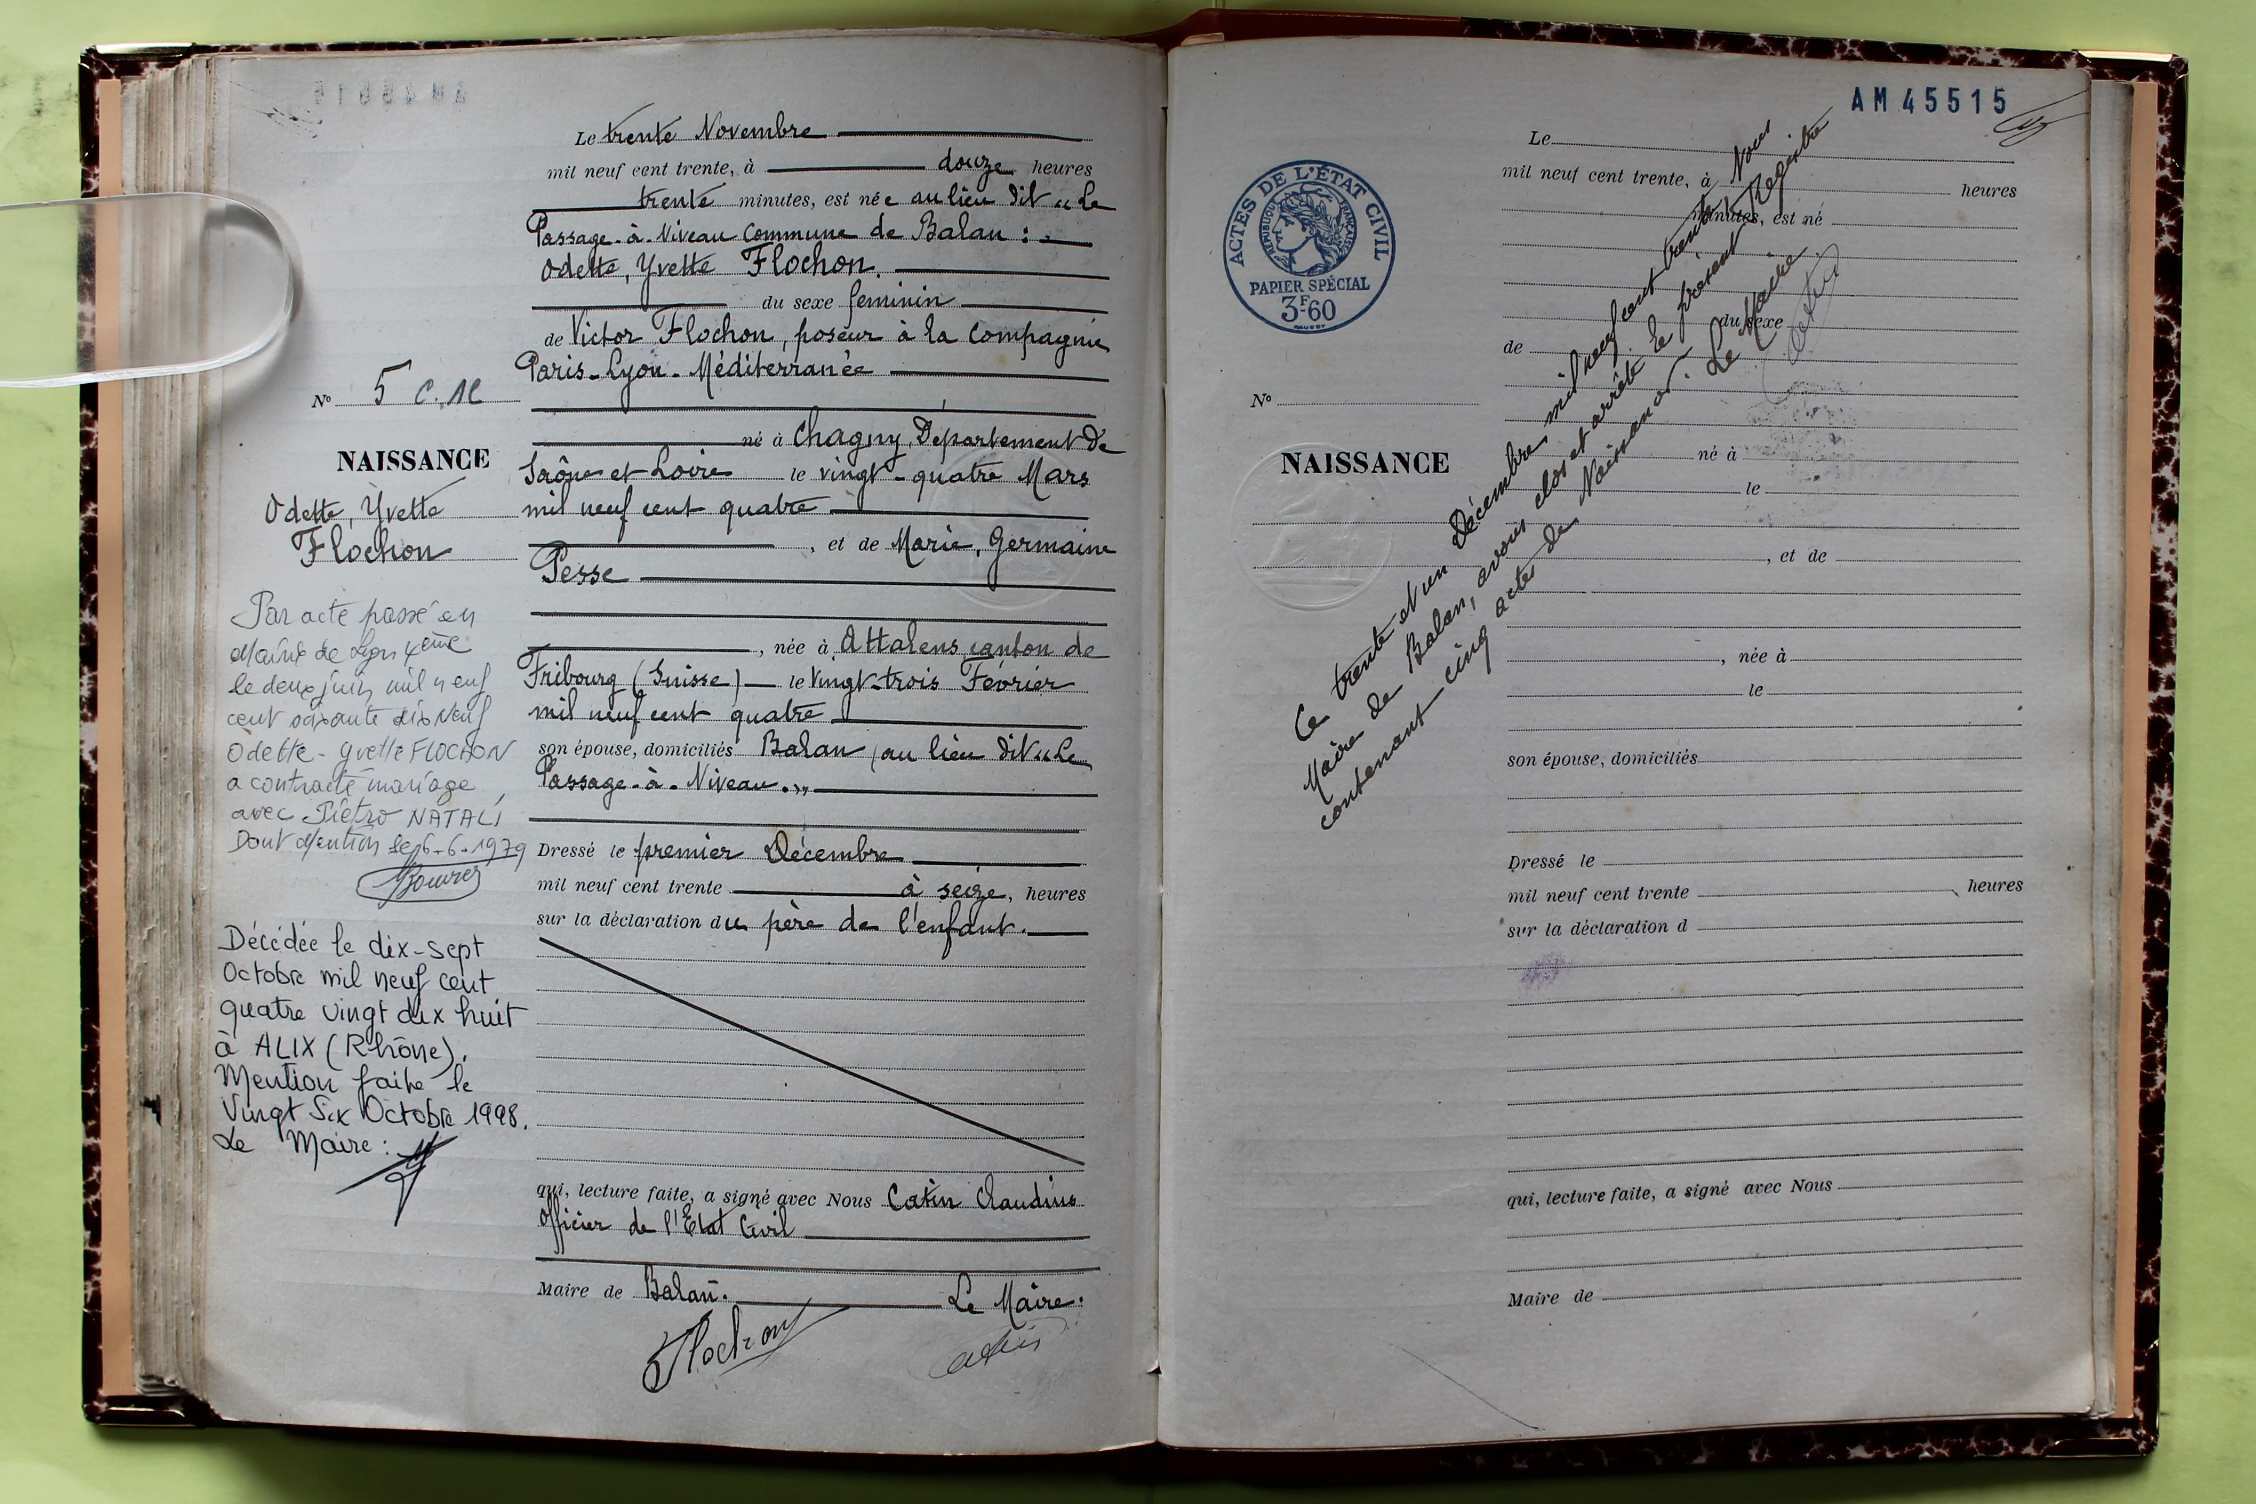 Le trente Novembre
mil neuf cent trente, à douze heures
trente minutes, est née au lieu dit "Le
Passage-à-Niveau Commune de Balan : -
Odette, Yvette Flochon.
du sexe féminin
de Victor Flochon, poseur à la Compagnie
Paris-Lyon-Méditerranée
né à Chagny, Département de
Saône et Loire le vingt-quatre Mars
mil neuf cent quatre
, et de Marie, Germaine
Pesse
, née à Attalens canton de
Fribourg (Suisse) le vingt-trois Février
mil neuf cent quatre
son épouse, domiciliés Balan, au lieu dit "Le
Passage-à-Niveau."
Dressé le premier Décembre
mil neuf cent trente à seize, heures
sur la déclaration du père de l'enfant.
qui, lecture faite, a signé avec Nous Catin Claudius
Officier de l'Etat Civil
Maire de Balan. Le Maire:
Flochon
Catin
N° 5
NAISSANCE
Odette, Yvette
Flochon
Par acte passé en
Mairie de Lyon 4ème
le deux juin mil neuf
cent soixante dix Neuf
Odette-Yvette FLOCHON
a contracté mariage
avec Piétro NATALI
Dont Mention le 6-6-1979
Décédée le dix-sept
Octobre mil neuf cent
quatre vingt dix huit
à ALIX (Rhône).
Mention faite le
Vingt Six Octobre 1998.
Le Maire:
AM 45515
ACTES DE L'ÉTAT CIVIL
RÉPUBLIQUE FRANÇAISE
PAPIER SPÉCIAL
3F60
Le
mil neuf cent trente, à heures
minutes, est né
du sexe
de
N°
NAISSANCE
né à
le
, et de
, née à
le
son épouse, domiciliés
Dressé le
mil neuf cent trente heures
sur la déclaration d
qui, lecture faite, a signé avec Nous
Maire de
Ce trente et un Décembre mil neuf cent trente, Nous
Maire de Balan, avons clos et arrêté le présent Registre
contenant cinq actes de Naissances. Le Maire
Catin